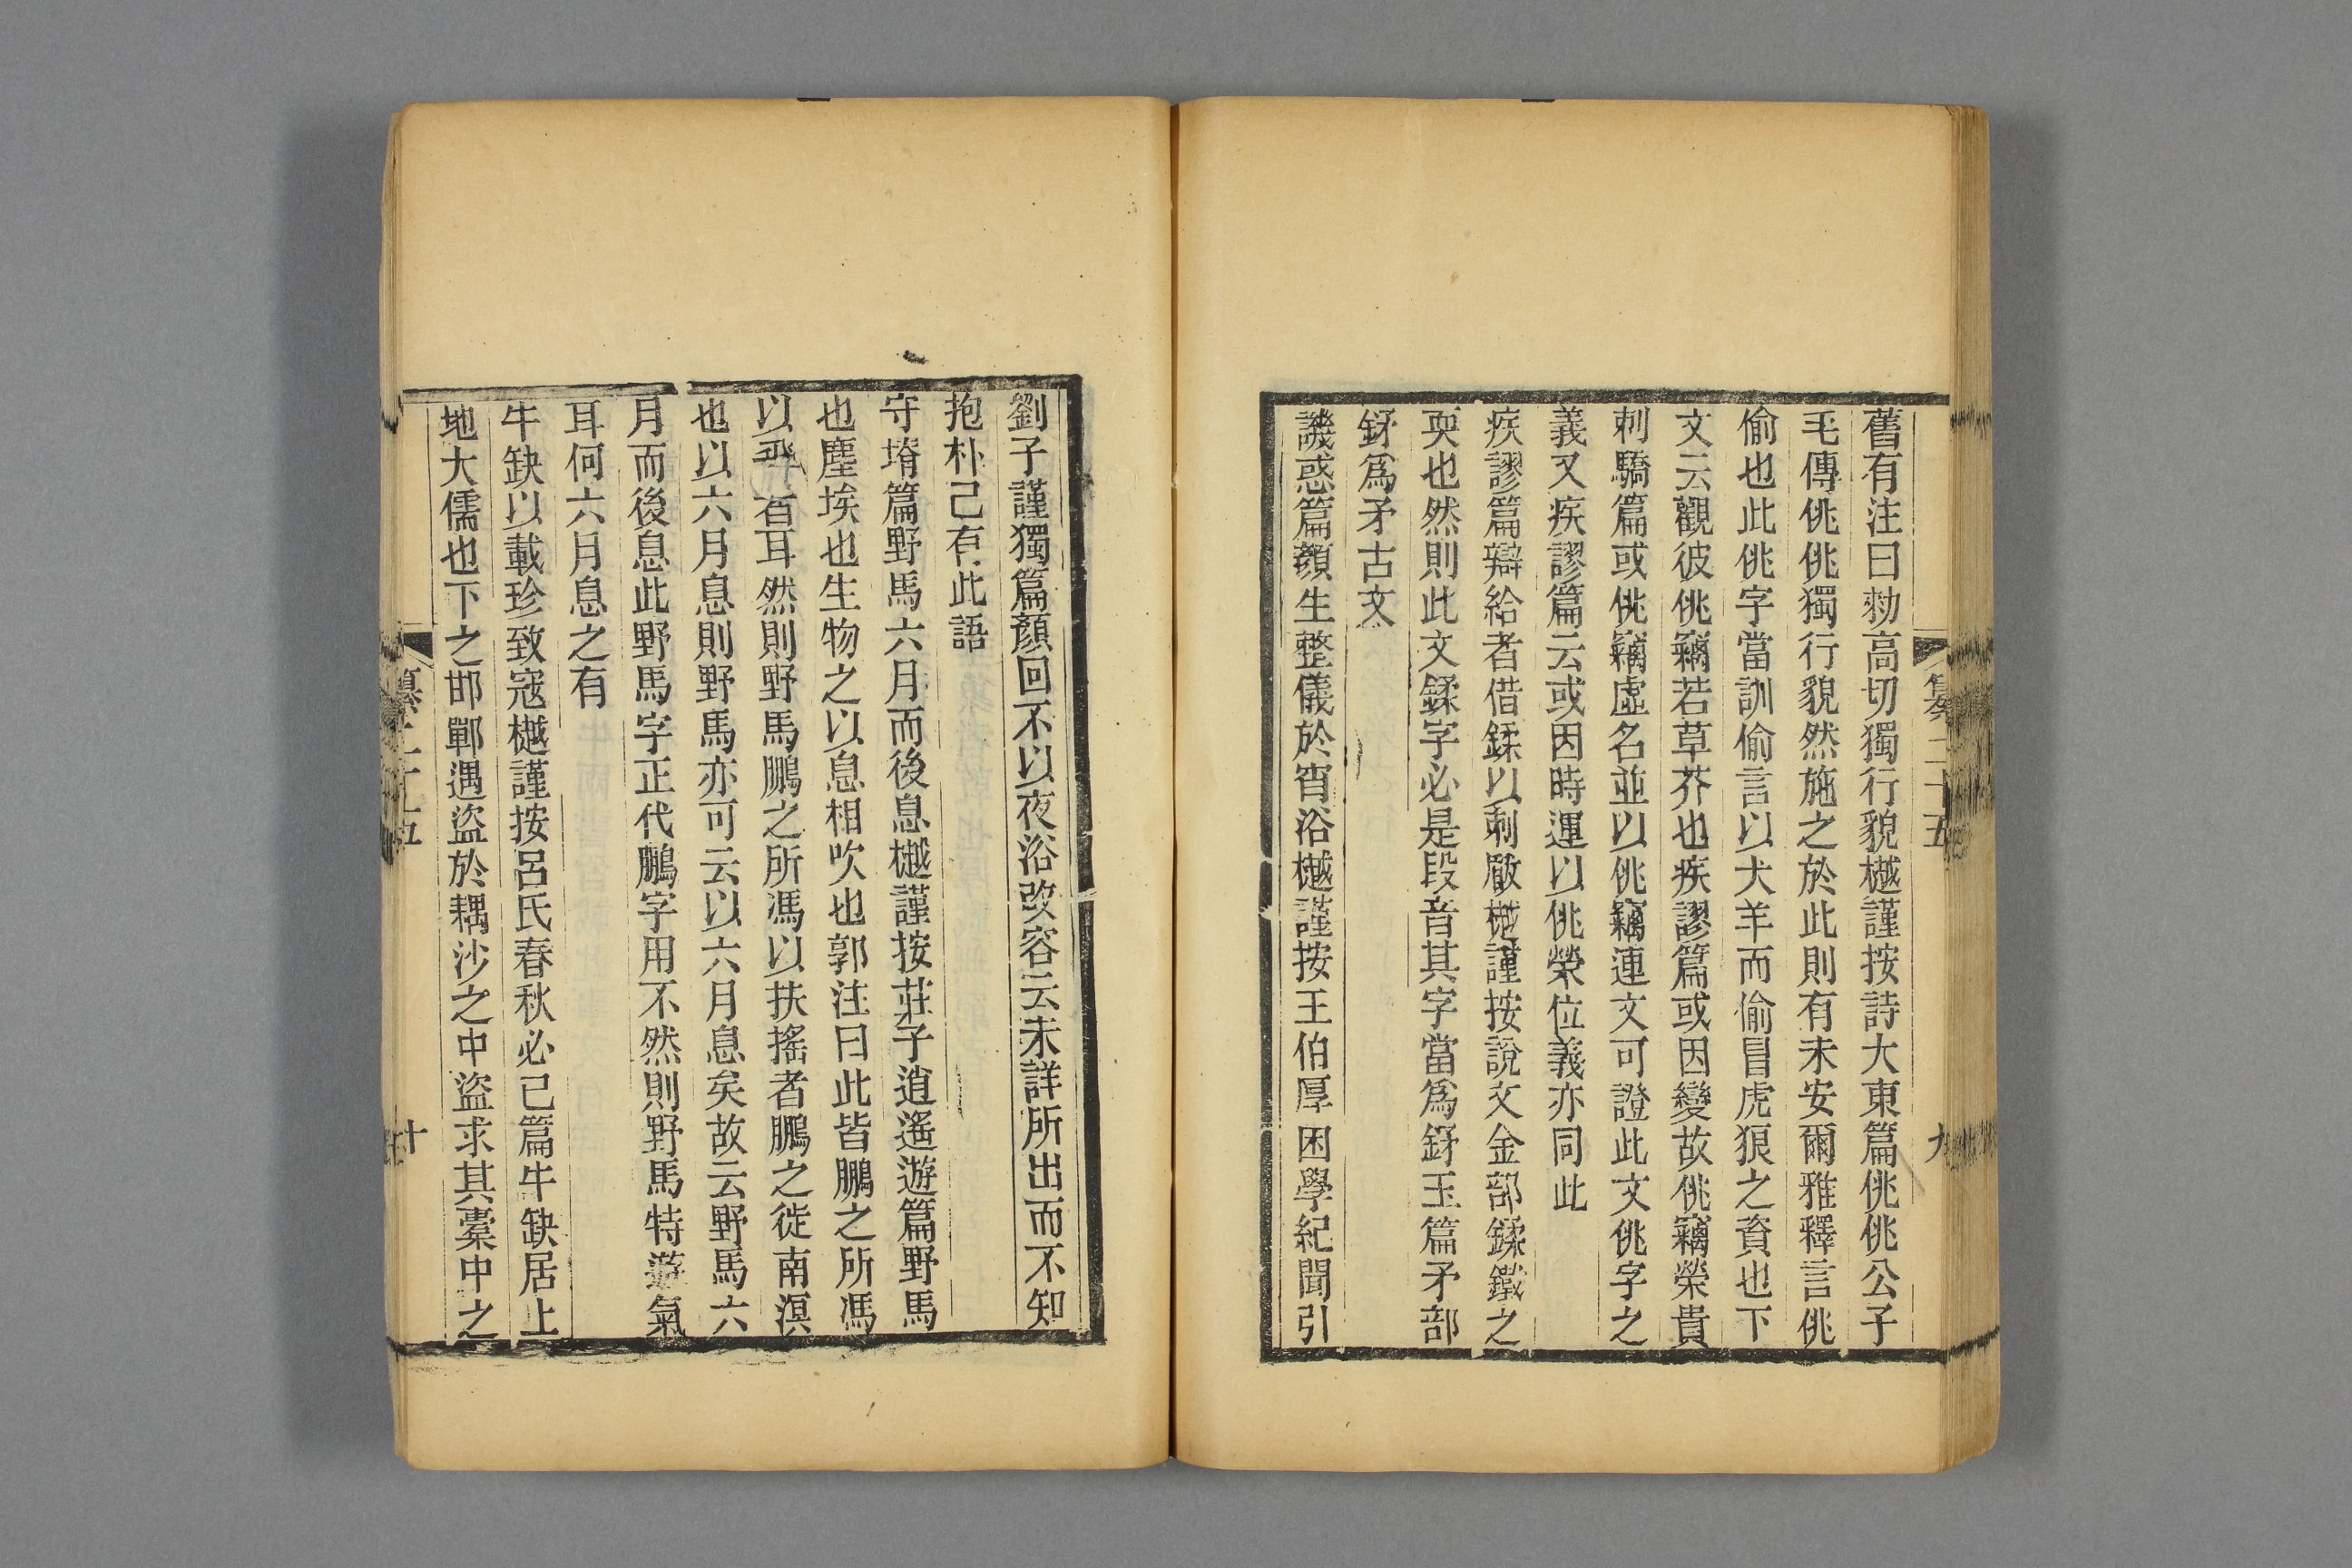 舊有注曰勑高切獨行貌樾謹按詩大東篇佻佻公子
毛傳佻佻獨行貌然施之於此則有未安爾雅釋言佻
偷也此佻字當訓偷言以犬羊而偷冒虎狼之資也下
文云觀彼佻竊若草芥也疾謬篇或因變故佻竊榮貴
刺驕篇或佻竊虛名並以佻竊連文可證此文佻字之
義又疾謬篇云或因時運以佻榮位義亦同此
疾謬篇辯給者借鍒以刺瞂樾謹按說文金部鍒鐵之
耎也然則此文鍒字必是段音其字當爲鉜玉篇矛部
鉜爲矛古文
譏惑篇顏生整儀於宵浴樾謹按王伯厚困學紀聞引
二十五
九
劉子謹獨篇顏回不以夜浴改容云未詳所出而不知
抱朴己有此語
守塉篇野馬六月而後息樾謹按莊子逍遙遊篇野馬
也塵埃也生物之以息相吹也郭注曰此皆鵬之所馮
以飛者耳然則野馬鵬之所馮以扶搖者鵬之徙南溟
也以六月息則野馬亦可云以六月息矣故云野馬六
月而後息此野馬字正代鵬字用不然則野馬特遊氣
耳何六月息之有
牛缺以載珍致寇樾謹按呂氏春秋必己篇牛缺居上
地大儒也下之邯鄲遇盜於耦沙之中盜求其橐中之
二十五
十